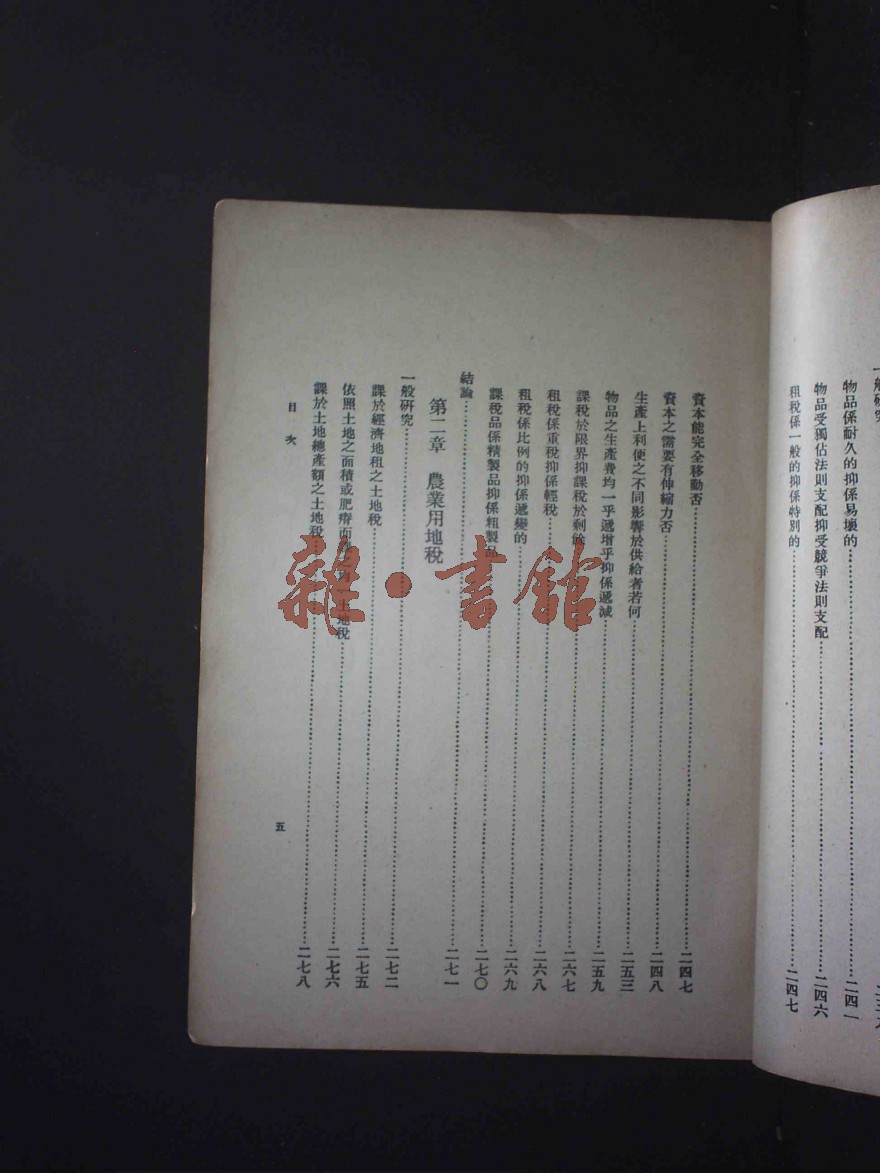 物品係耐久的抑係易壞的……二四一
物品受獨佔法則支配抑受競爭法則支配……二四六
租稅係一般的抑係特別的……二四七
資本能完全移動否……二四七
資本之需要有伸縮力否……二四八
生產上利便之不同影響於供給者若何……二五三
物品之生產費均一乎遞增乎抑係遞減……二五九
課稅於限界抑課稅於剩餘……二六七
租稅係重稅抑係輕稅……二六八
租稅係比例的抑係遞變的……二六九
課稅品係精製品抑係粗製品……二七〇
結論……二七一
第二章 農業用地稅
一般研究……二七二
課於經濟地租之土地稅……二七五
依照土地之面積或肥瘠而 土地稅……二七六
課於土地總產額之土地稅……二七八
目次
五
雜·書館